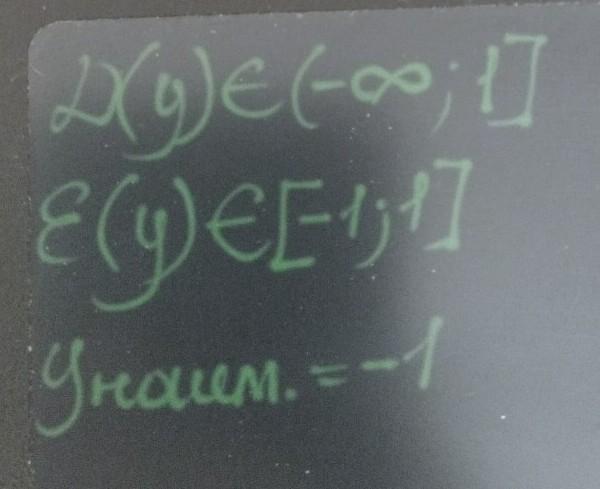 D(y)∈(-∞; 1]
E(y)∈[-1;1]
Yнаим. = -1